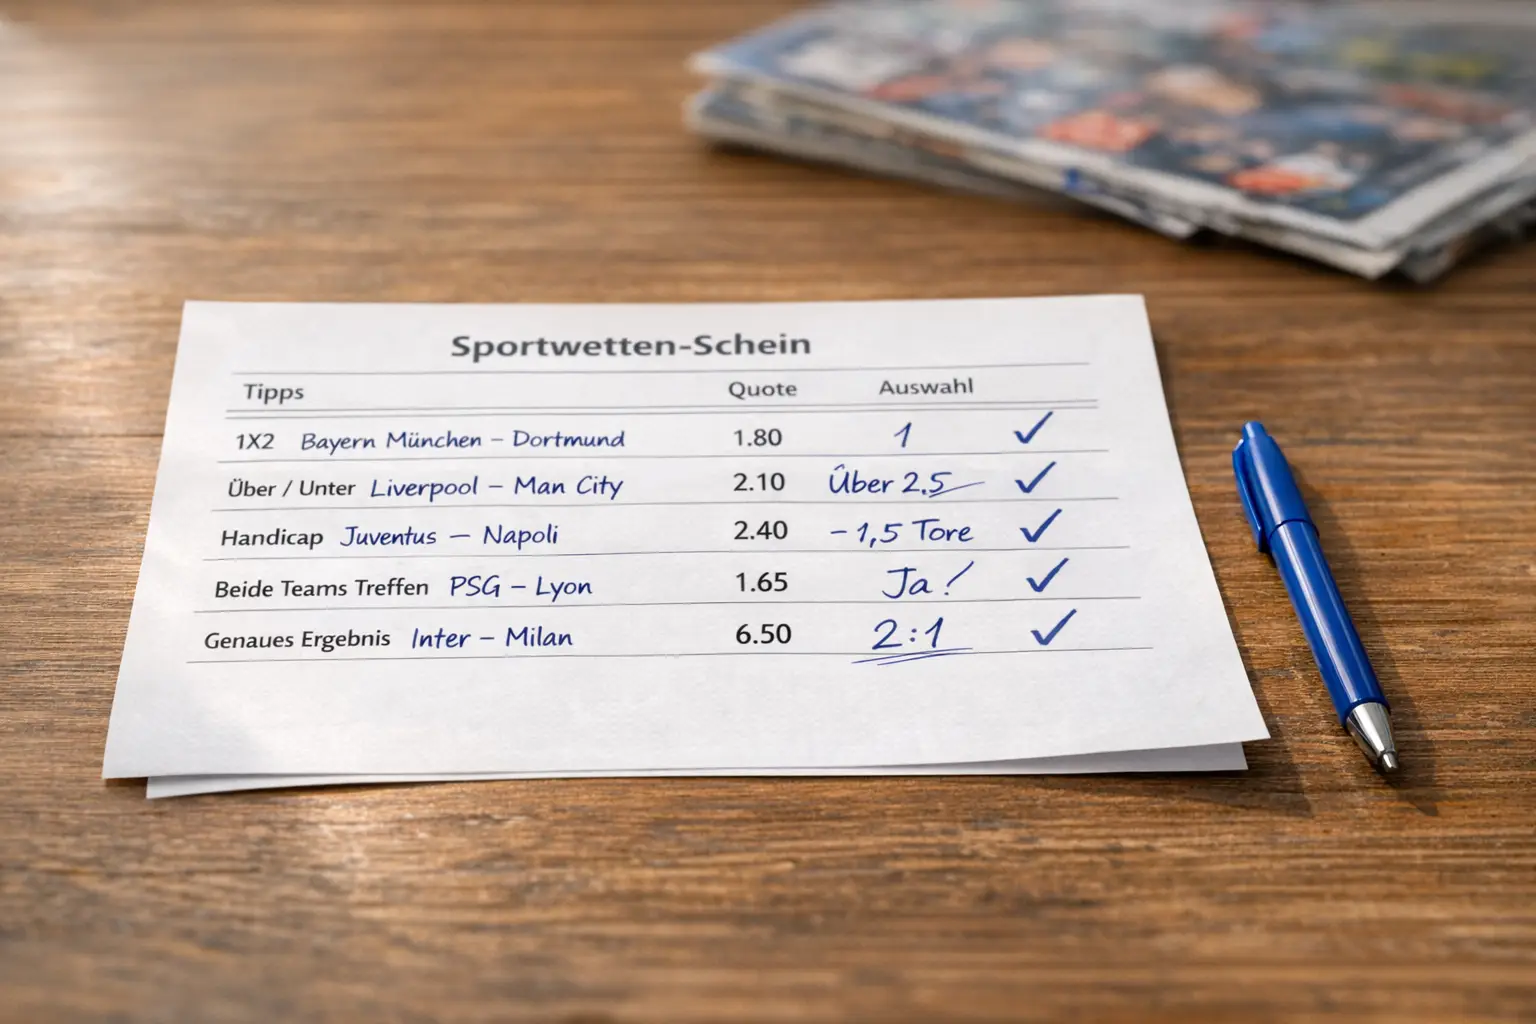 Sportwetten-Schein
Tipps Quote Auswahl
1X2 Bayern München – Dortmund 1.80 1 ✓
Über / Unter Liverpool – Man City 2.10 Über 2.5 ✓
Handicap Juventus – Napoli 2.40 – 1,5 Tore ✓
Beide Teams Treffen PSG – Lyon 1.65 Ja! ✓
Genaues Ergebnis Inter – Milan 6.50 2:1 ✓